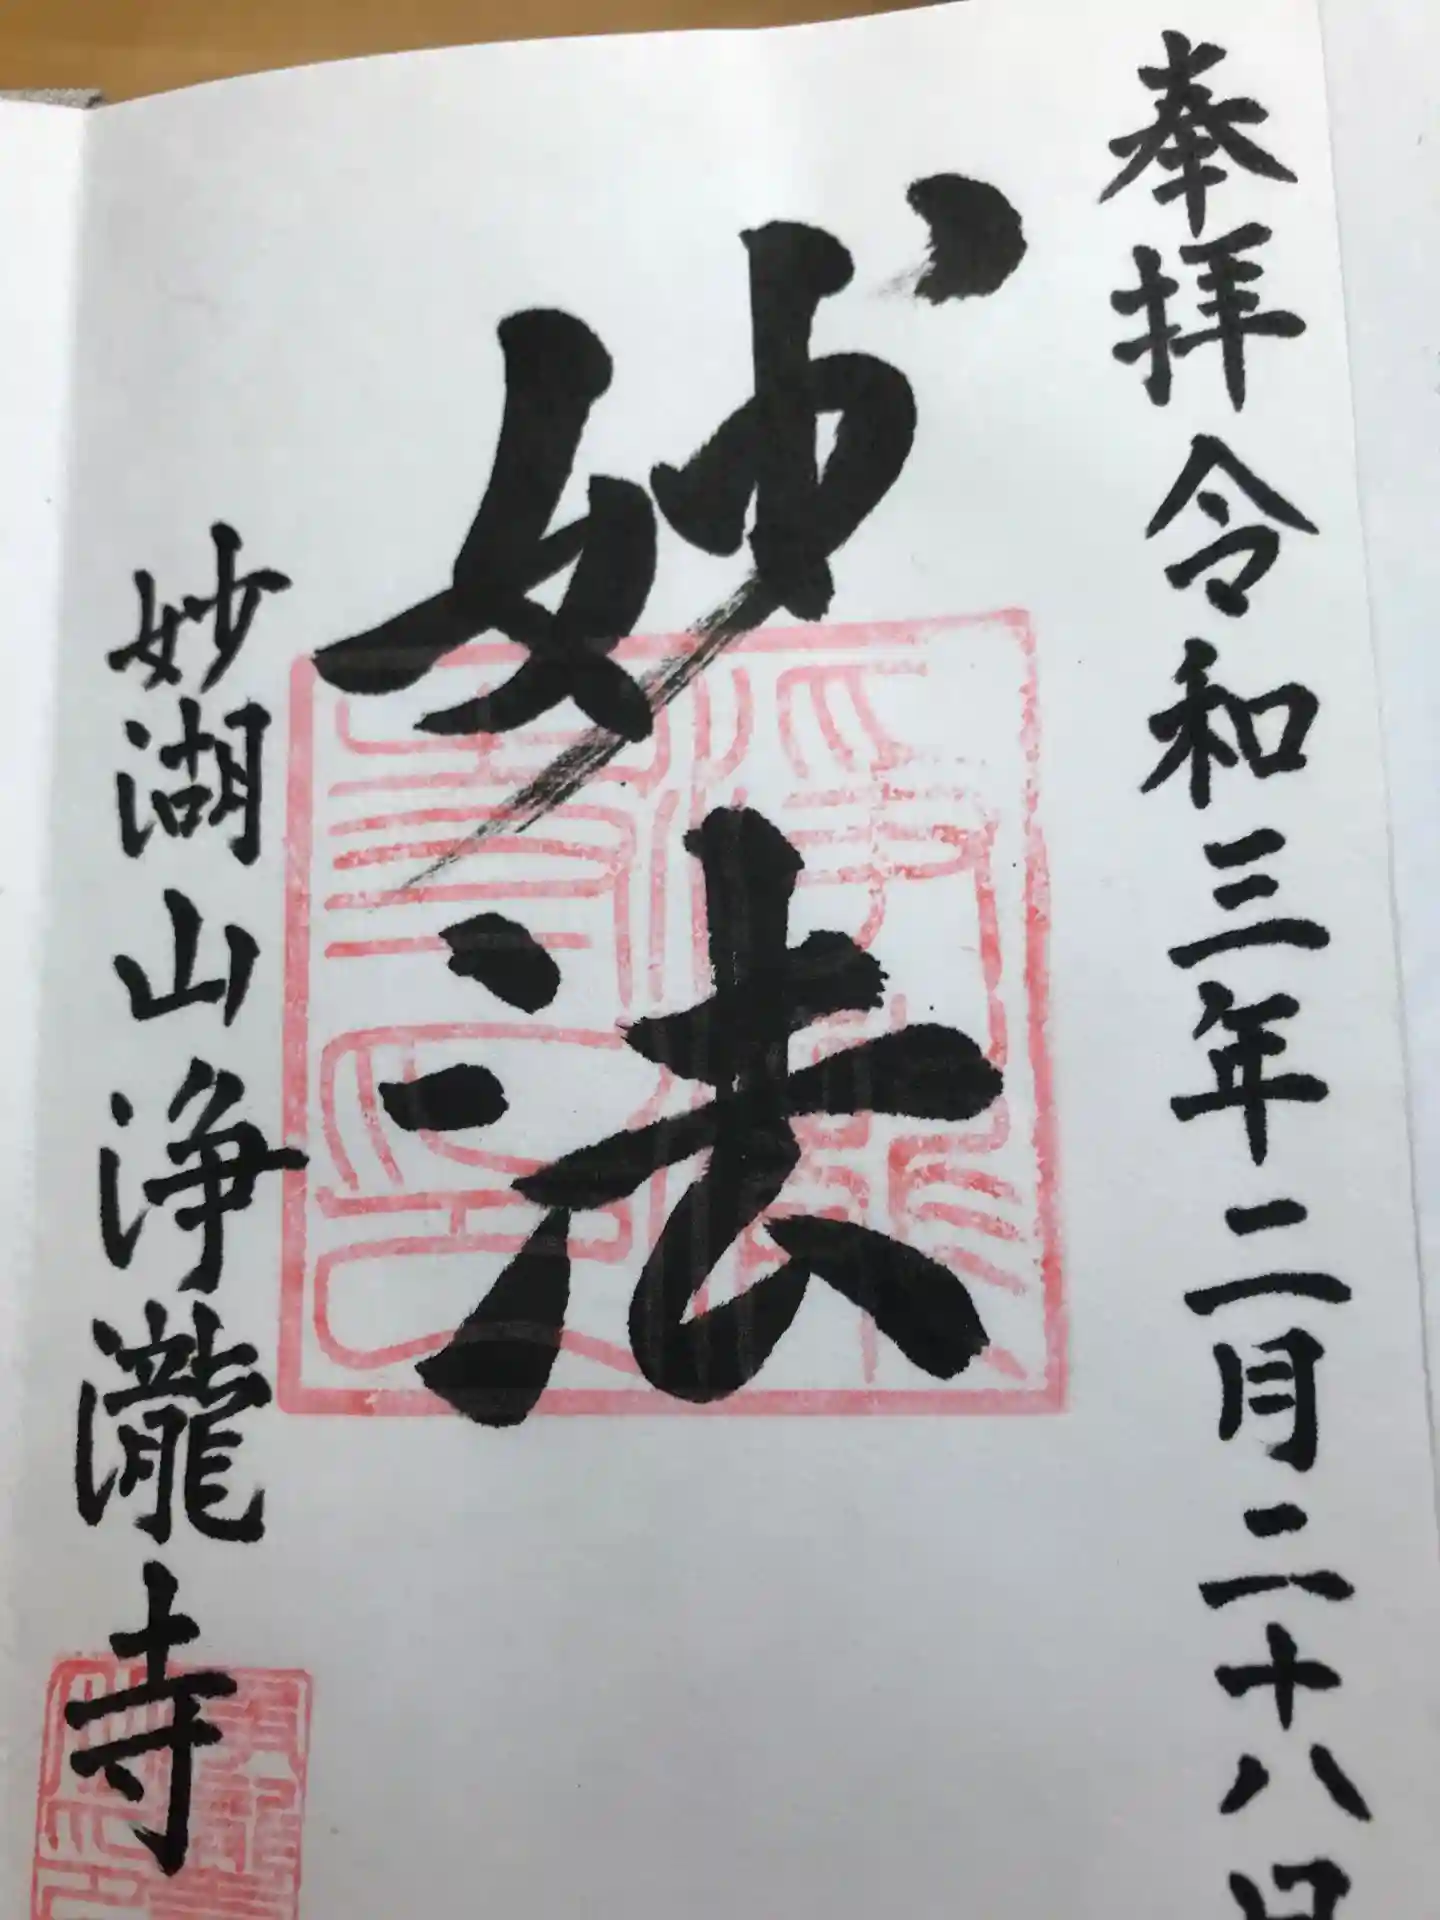 奉拝 令和三年二月二十八日
妙法
妙湖山浄瀧寺